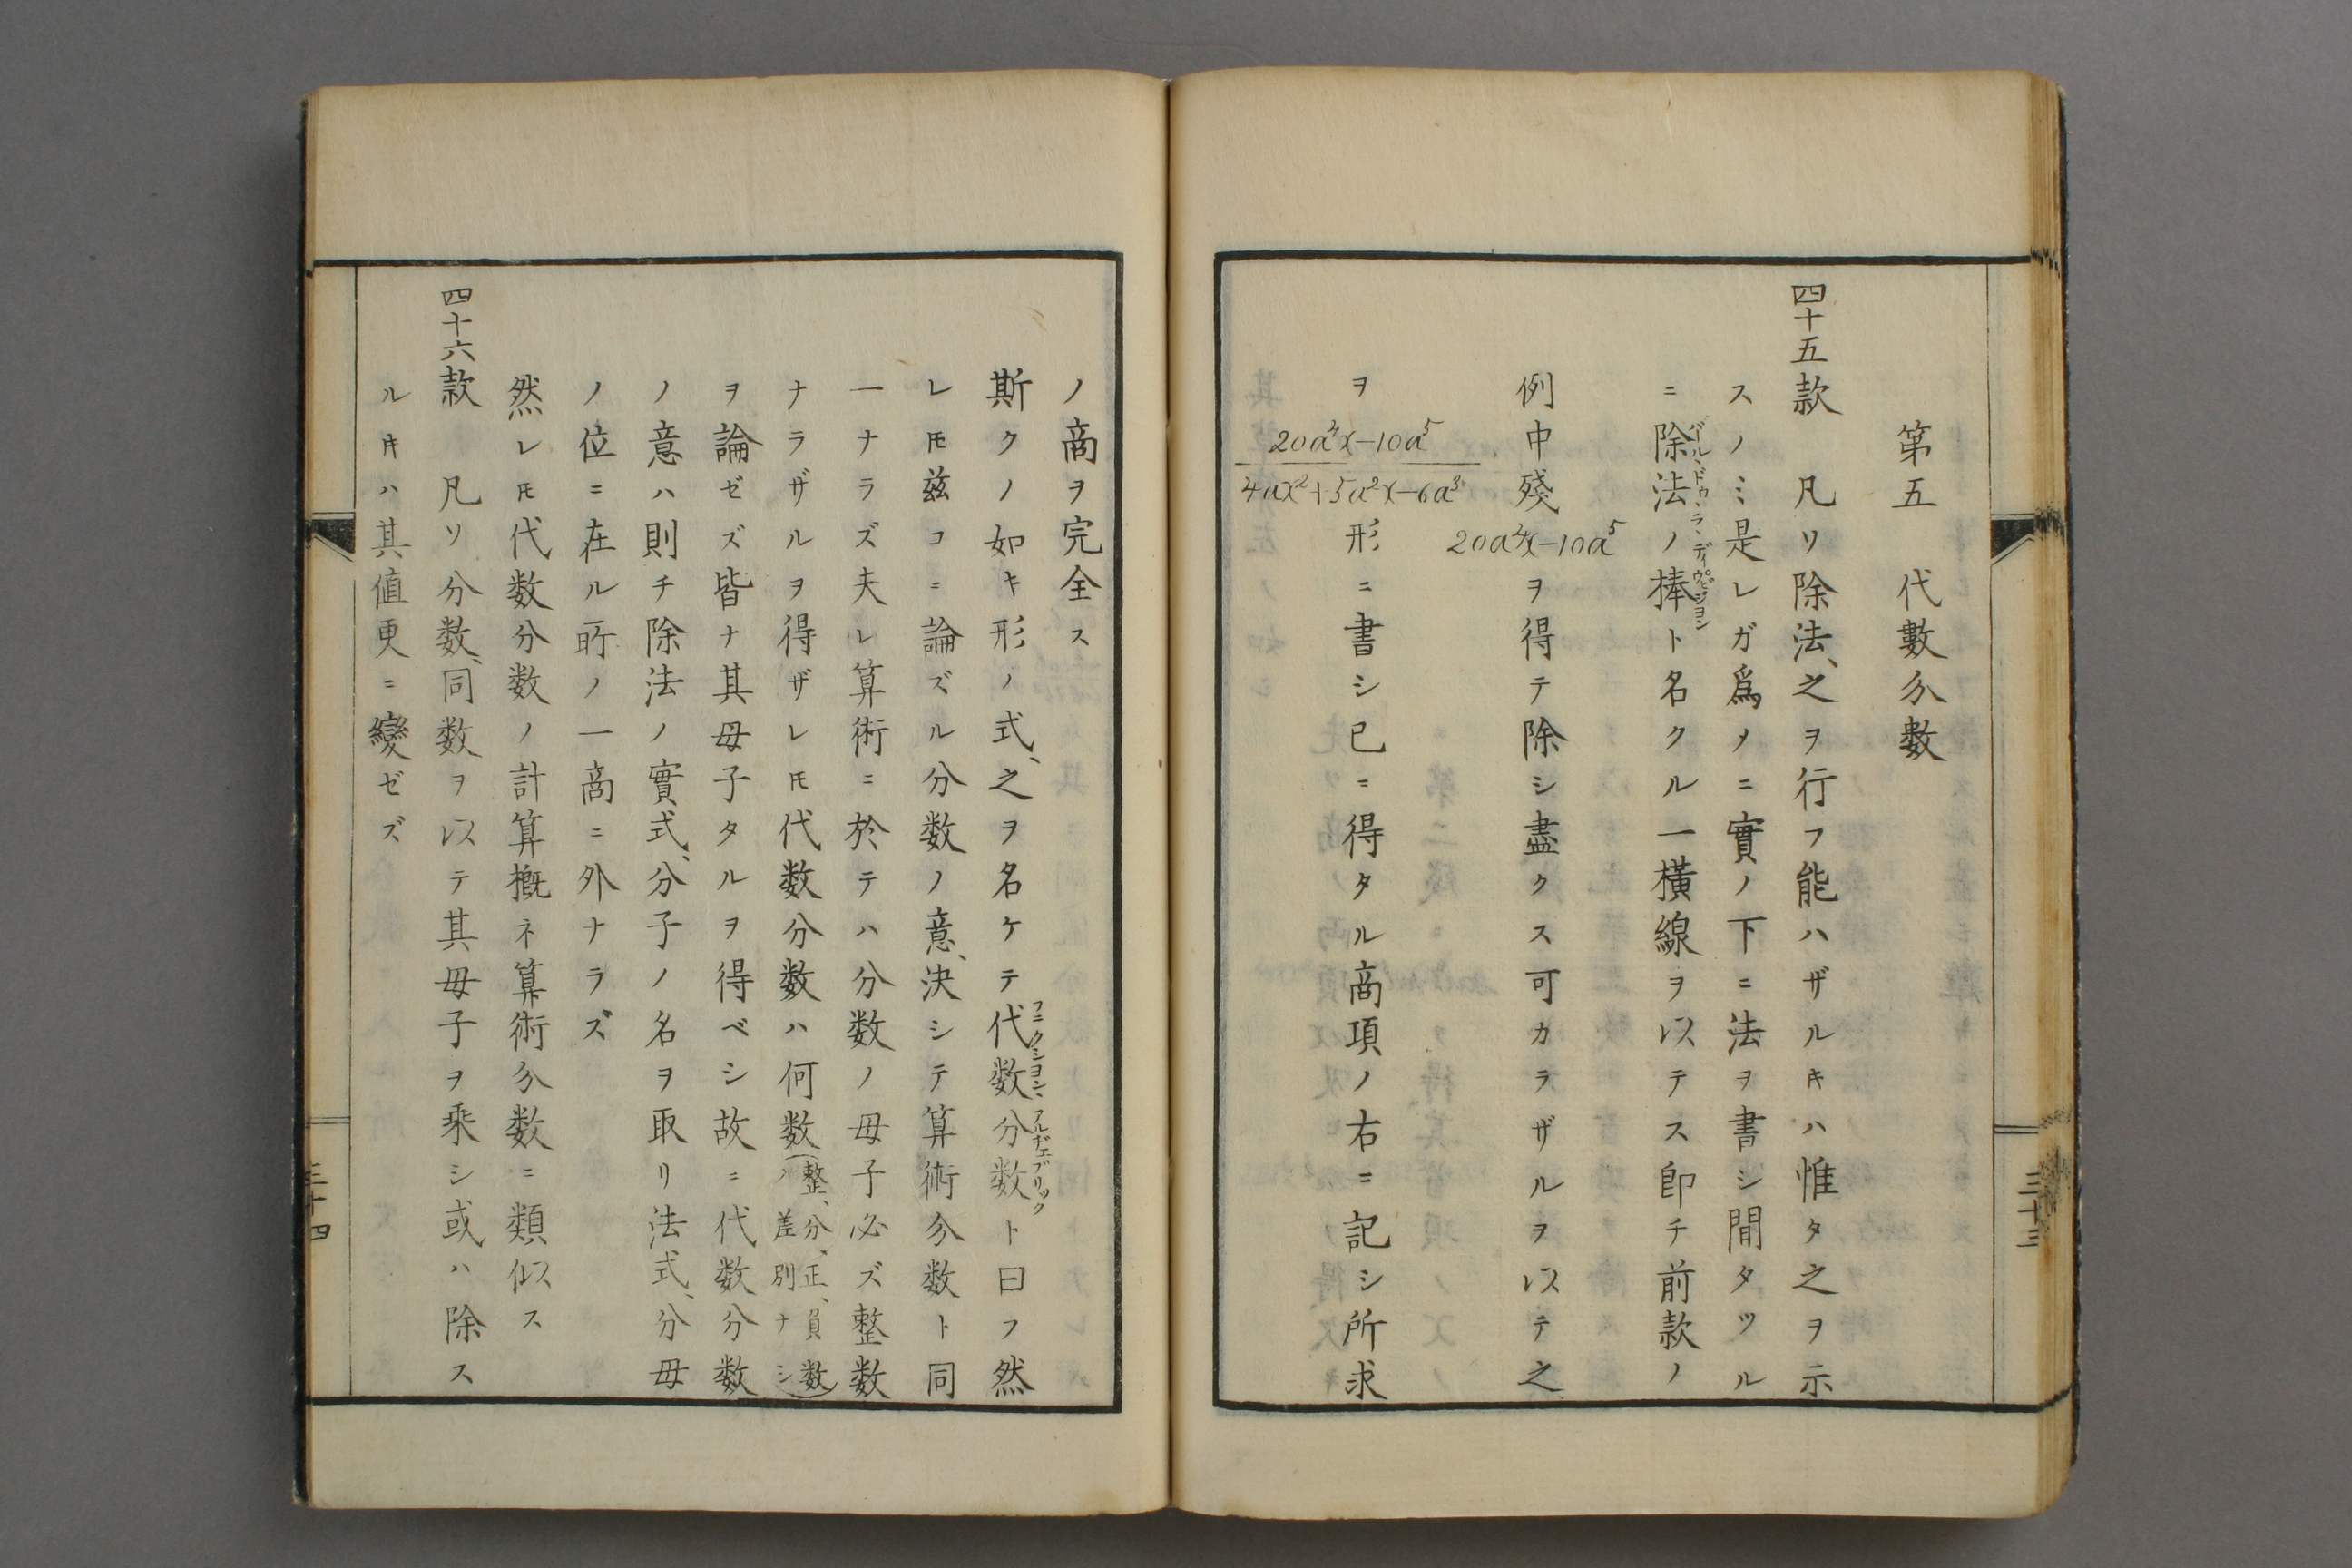 第五　代數分数
四十五款　凡リ除法、之ヲ行フ能ハザルキハ惟タ之ヲ示
スノミ是レガ爲メニ實ノ下ニ法ヲ書シ間タツル
ニ除法ノ捧ト名クル一横線ヲ以テス卽チ前款ノ
例中殘20a⁴x−10a⁵ヲ得テ除シ盡クス可カラザルヲ以テ之
ヲ
20a⁴x−10a⁵
4ax²+5a²x−6a³
形ニ書シ已ニ得タル商項ノ右ニ記シ所求
三十三
ノ商ヲ完全ス
斯クノ如キ形ノ式、之ヲ名ケテ代数分数ト曰フ然
フニクシヨン、アルヂェブリック
レ𪜈茲コニ論ズル分数ノ意、決シテ算術分数ト同
一ナラズ夫レ算術ニ於テハ分数ノ母子必ズ整数
ナラザルヲ得ザレ𪜈代数分数ハ何数（整、分、正、負数ノ差別ナシ）
ヲ論ゼズ皆ナ其母子タルヲ得ベシ故ニ代数分数
ノ意ハ則チ除法ノ實式、分子ノ名ヲ取リ法式、分母
ノ位ニ在ル所ノ一商ニ外ナラズ
然レ𪜈代数分数ノ計算概ネ算術分数ニ類似ス
四十六款　凡ソ分数、同数ヲ以テ其母子ヲ乘シ或ハ除ス
ルキハ其値更ニ變ゼズ
三十四